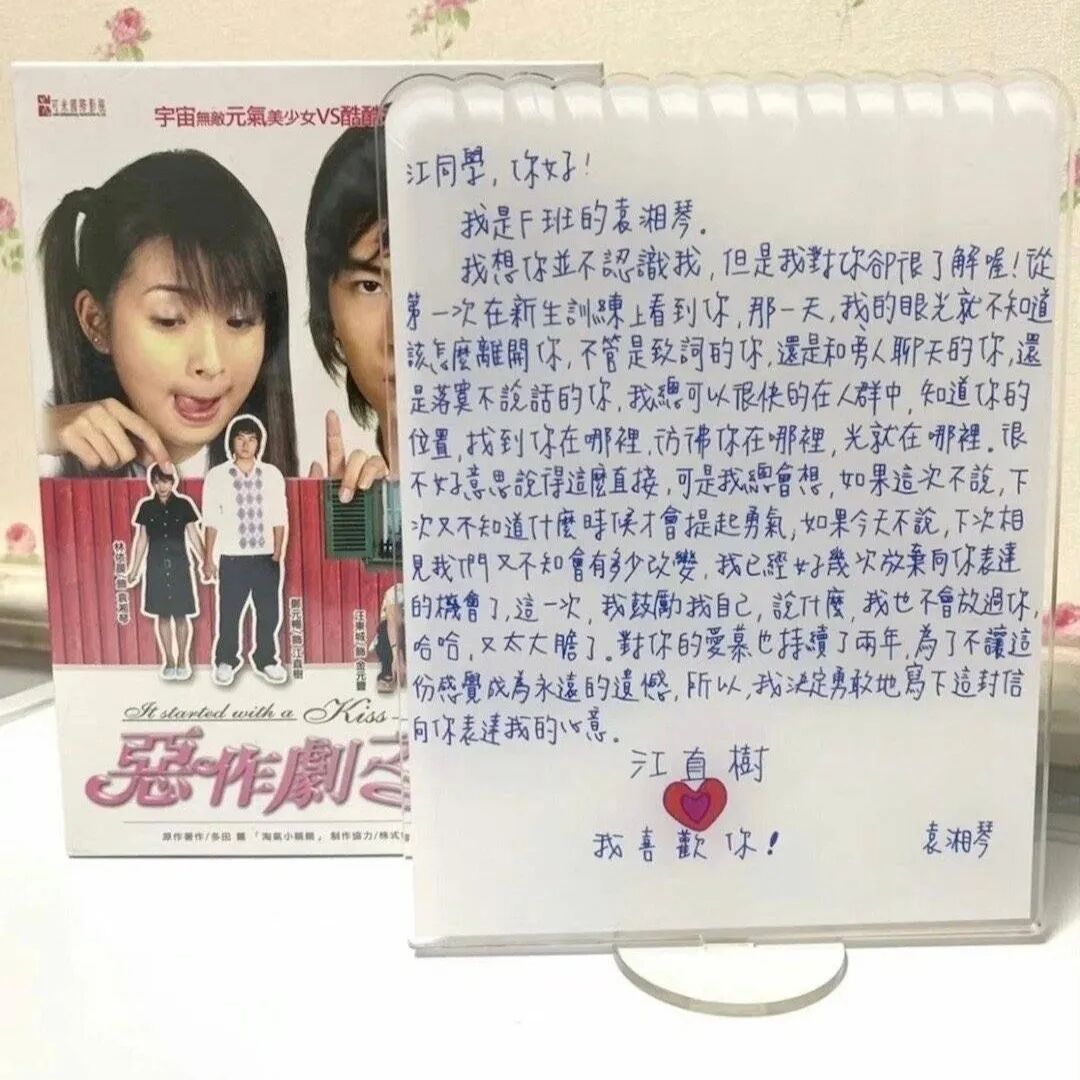 可米國際影視
宇宙無敵元氣美少女VS酷酷
林依晨/飾袁湘琴
鄭元暢/飾江直樹
汪東城/飾金元豐
It started with a Kiss
惡作劇
原作著作/多田 薰 「淘氣小親親」 制作協力/株式
江同學，你好！
我是F班的袁湘琴。
我想你並不認識我，但是我對你卻很了解喔！從
第一次在新生訓練上看到你，那一天，我的眼光就不知道
該怎麼離開你，不管是致詞的你，還是和旁人聊天的你，還
是落寞不說話的你，我總可以很快的在人群中，知道你的
位置，找到你在哪裡，彷彿你在哪裡，光就在哪裡。很
不好意思說得這麼直接，可是我總會想，如果這次不說，下
次又不知道什麼時候才會提起勇氣，如果今天不說，下次相
見我們又不知會有多少改變，我已經好幾次放棄向你表達
的機會了，這一次，我鼓勵我自己，說什麼，我也不會放過你，
哈哈，又太大膽了。對你的愛慕也持續了兩年，為了不讓這
份感覺成為永遠的遺憾，所以，我決定勇敢地寫下這封信
向你表達我的心意。
江直樹
我喜歡你！
袁湘琴